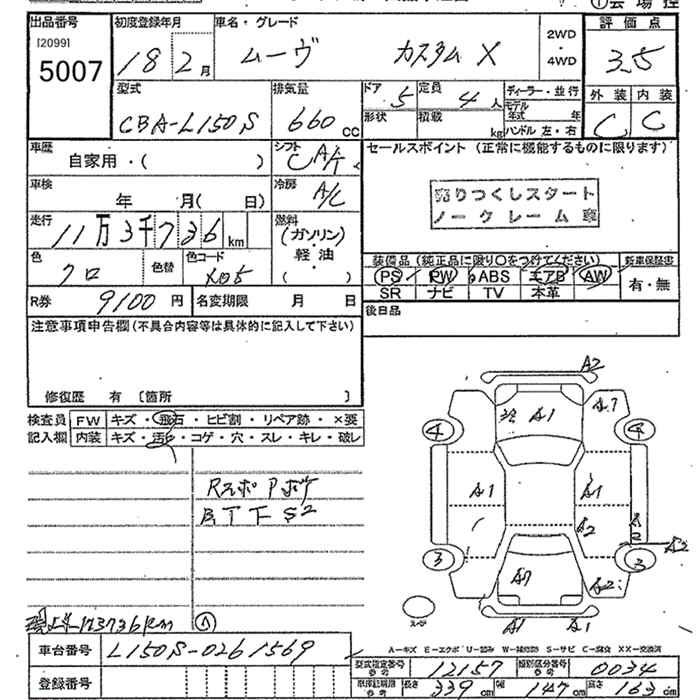 出品番号 初度登録年月 車名・グレード 2WD・4WD 評価点
[20991
5007 18 2月 ムーヴ カスタムX 3.5
型式 排気量 ドア 定員 ディーラー・並行 外装 内装
CBA-L150S 660cc 5 4人 モデル年式 年 C C
形状 積載 kg ハンドル 左・右
車歴 自家用・( ) シフト CAT セールスポイント (正常に機能するものに限ります)
車検 年 月( 日) 冷房 A/C
売りつくしスタート
ノークレーム車
走行 11万3千736km 燃料 (ガソリン)・軽油・( )
色 クロ 色替 色コード X05
装備品 (純正品に限り○をつけてください) 新車保証書
PS PW ABS エアB AW 有・無
SR ナビ TV 本革
R券 9100円 名変期限 月 日
後日品
注意事項申告欄 (不具合内容等は具体的に記入して下さい)
修復歴 有 [箇所 ]
検査員 FW キズ・飛石・ヒビ割・リペア跡・×要
記入欄 内装 キズ・汚れ・コゲ・穴・スレ・キレ・破レ
A2
A1 A1 A1 A2 A2 A2
A1 A1
4 3
スペア
A-キズ E-エクボ U-凹み W-補修跡 S-サビ C-腐食 XX-交換済
113736km A
車台番号 L150S-0261569
型式指定番号 参考 12157 類別区分番号 参考 0034
登録番号
長さ 339cm 幅 147cm 高さ 163cm